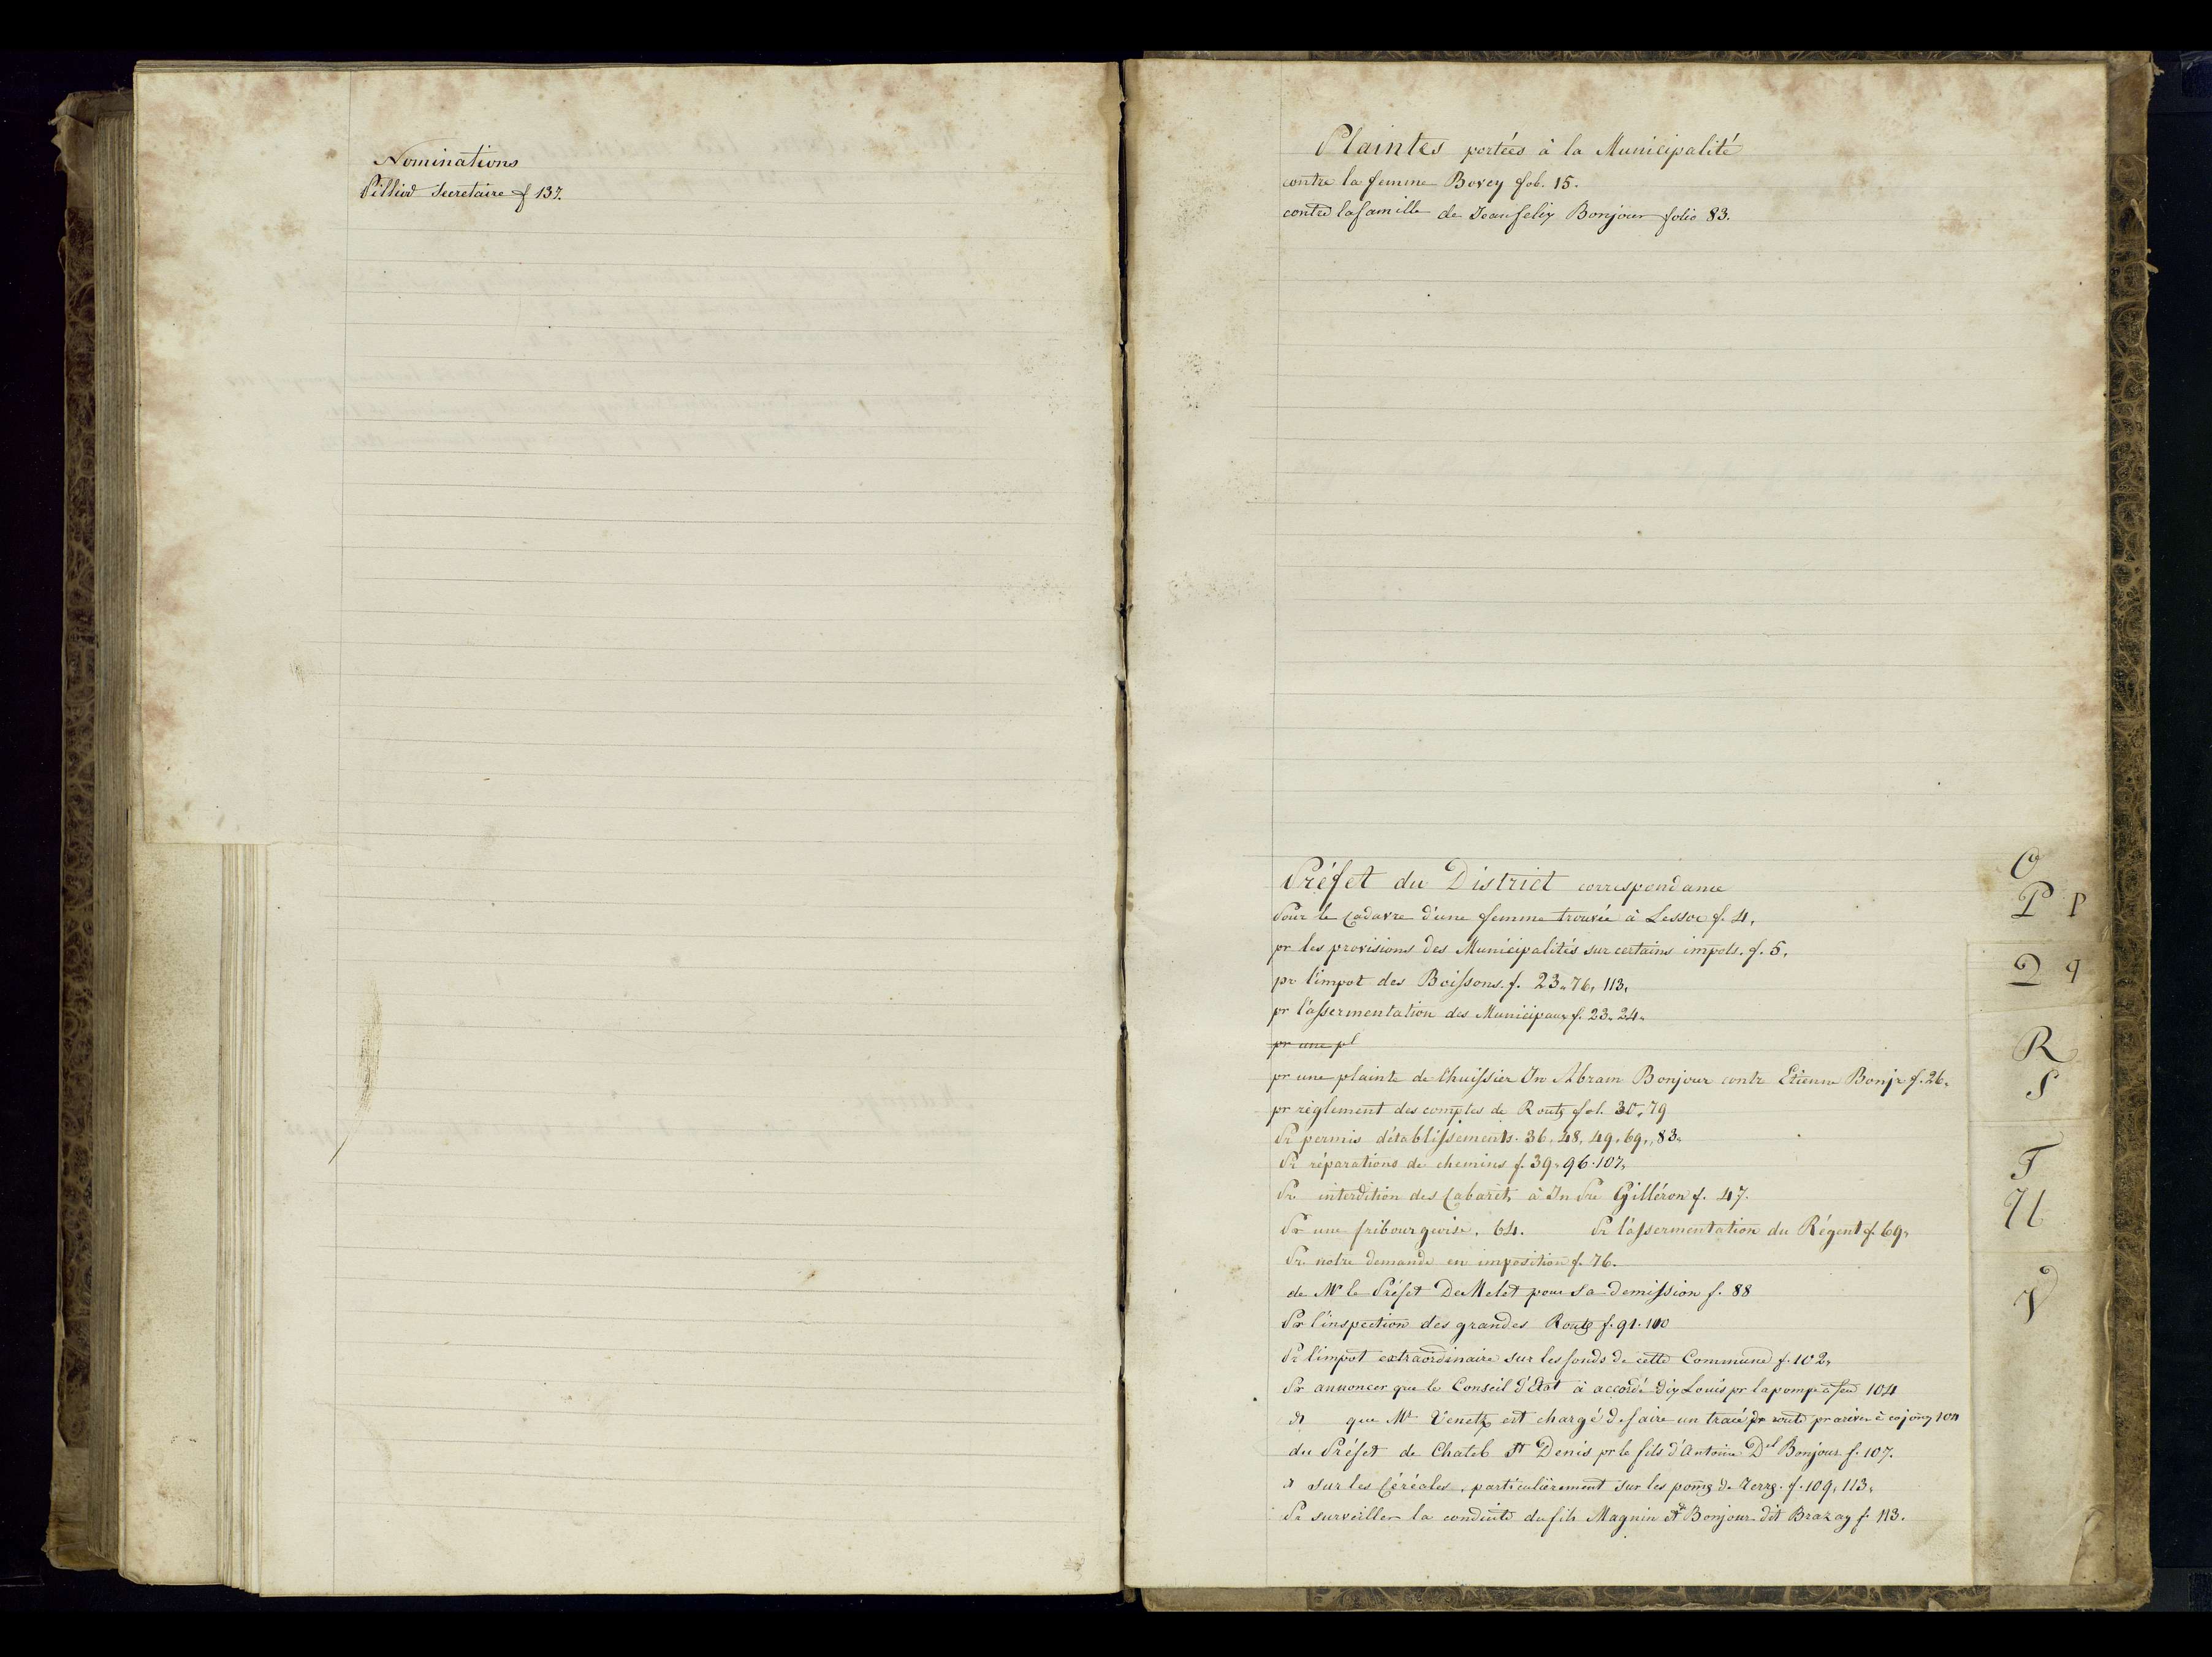 Nominations
Pilliod Secretaire f 137.
Plaintes portées à la Municipalité
contre la femme Bovey fol. 15.
contre la famille de Jean felix Bonjour folio 83.
Préfet du District correspondance
Pour le Cadavre d'une femme trouvée à Lessoc f. 4,
pr les provisions des Municipalités sur certains impots. f. 5,
pr l'impot des Boissons. f. 23, 76, 113,
pr l'assermentation des Municipaux f. 23, 24,
pr une pl
pr une plainte de l'huissier Jn Abram Bonjour contr Etienne Bonjr f. 26,
pr règlement des comptes de Routs fol. 30, 79
Pr permis d'établissements. 36, 48, 49, 69, 83,
Pr réparations de chemins f. 39, 96. 107,
Pr interdition des Cabarets à Jn Pre Gilléron f. 47.
Pr une fribourgeoise. 64. Pr l'assermentation du Régent f. 69,
Pr notre demande en imposition f. 76.
de Mr le Préfet DeMelet pour sa demission f. 88
Pr l'inspection des grandes Routs f. 91. 110
Pr l'impot extraordinaire sur les fonds de cette Commune f. 102,
Pr annoncer que le Conseil d'Etat à accordé dix Louis pr la pompe à feu 104
que Mr Venetz est chargé de faire un tracé pr route pr ariver è 104
du Préfet de Chatel St Denis pr le fils d'Antoine Del Bonjour f. 107.
sur les Céréales, particulièrement sur les poms de Terrs. f. 109, 113,
Pr surveiller la conduite du fils Magnin et de Bonjour dit Brazay f. 113.
O
P p
Q q
R
S
T
U
V